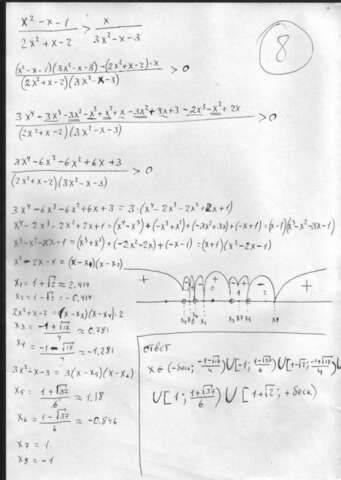 x² - x - 1 / 2x² + x - 2 > x / 3x² - x - 3
8
(x² - x - 1)(3x² - x - 3) - (2x² + x - 2)·x / (2x² + x - 2)(3x² - x - 3) > 0
3x⁴ - 3x³ - 3x² - x³ + x² + x - 3x² + 3x + 3 - 2x³ - x² + 2x / (2x² + x - 2)(3x² - x - 3) > 0
3x⁴ - 6x³ - 6x² + 6x + 3 / (2x² + x - 2)(3x² - x - 3) > 0
3x⁴ - 6x³ - 6x² + 6x + 3 = 3·(x⁴ - 2x³ - 2x² + 2x + 1)
x⁴ - 2x³ - 2x² + 2x + 1 = (x⁴ - x³) + (-x³ + x²) + (-3x² + 3x) + (-x + 1) = (x - 1)(x³ - x² - 3x - 1)
x³ - x² - 3x - 1 = (x³ + x²) + (-2x² - 2x) + (-x - 1) = (x + 1)(x² - 2x - 1)
x² - 2x - 1 = (x - x₁)(x - x₂)
x₁ = 1 + √2 ≈ 2.414
x₂ = 1 - √2 = -0.414
2x² + x - 2 = (x - x₃)(x - x₄)·2
x₃ = -1 + √17 / 4 ≈ 0.781
x₄ = -1 - √17 / 4 ≈ -1.281
3x² - x - 3 = 3(x - x₅)(x - x₆)
x₅ = 1 + √37 / 6 ≈ 1.18
x₆ = 1 - √37 / 6 ≈ -0.846
x₇ = 1
x₈ = -1
ответ
x ∈ (-беск; -1-√17 / 4) ∪ [-1; 1-√37 / 6) ∪ [1-√2; -1+√17 / 4)
∪ [1; 1+√37 / 6) ∪ [1+√2; +беск)